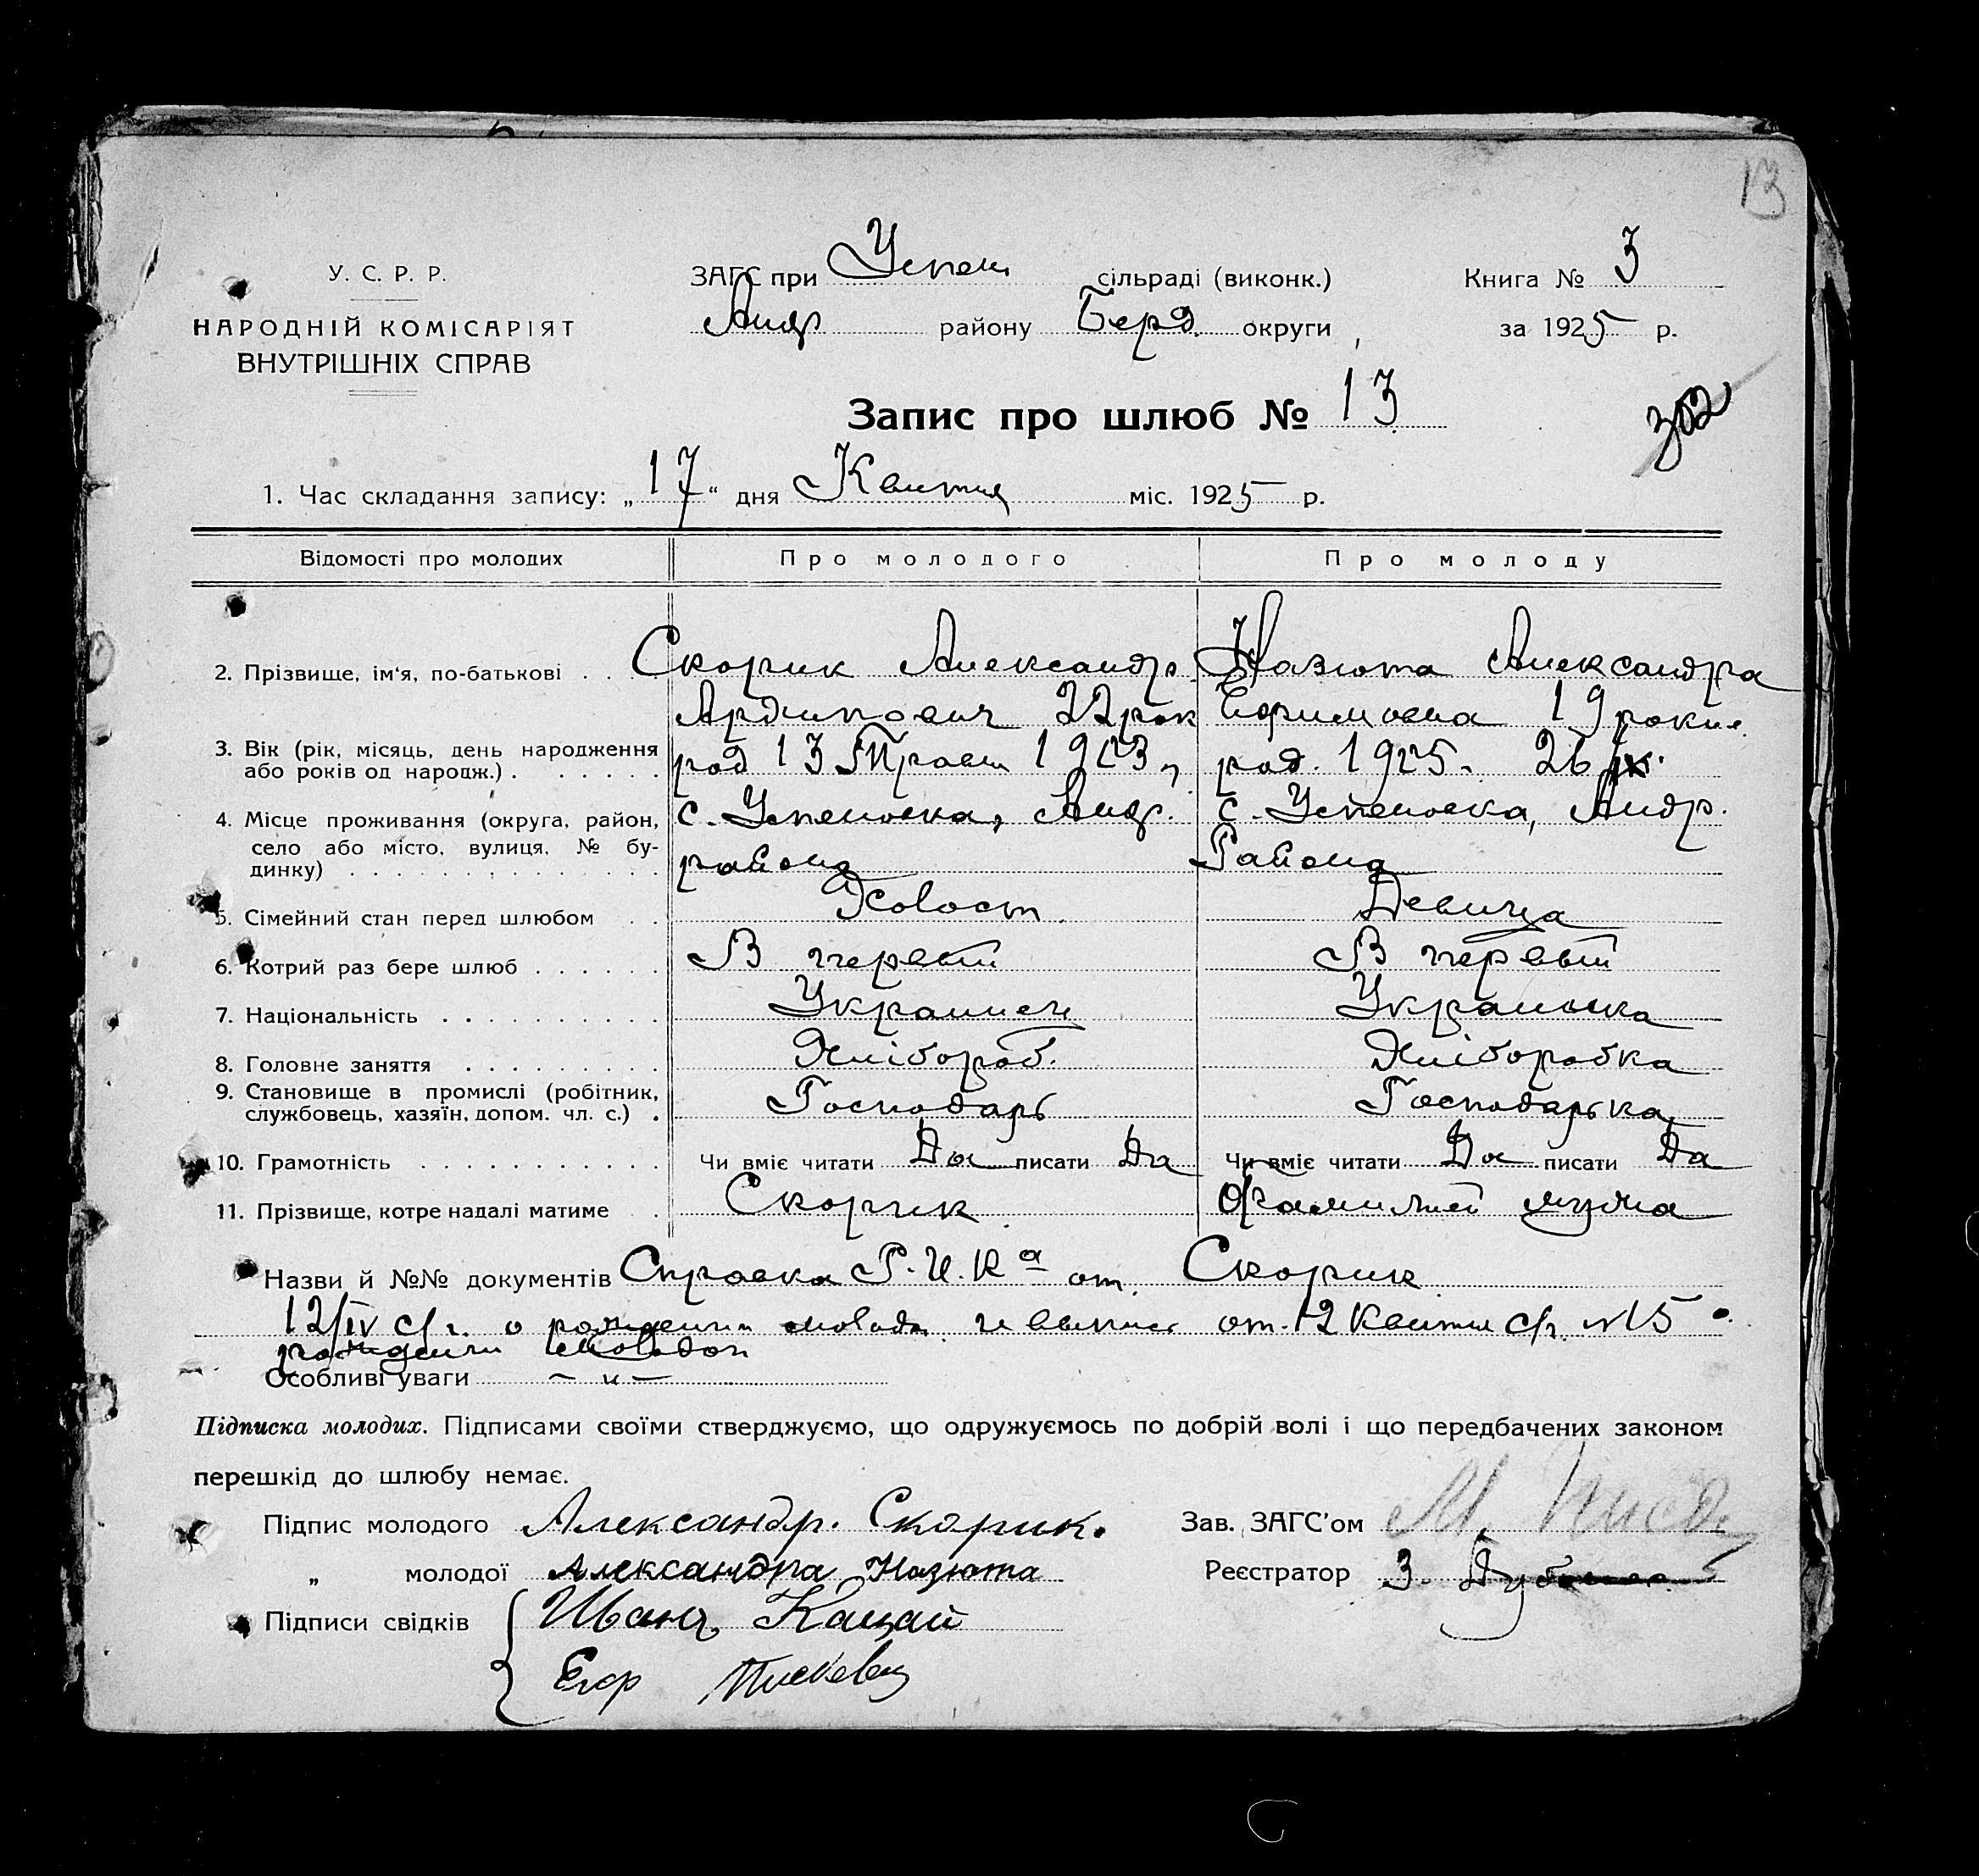 13
У. С. Р. Р.
НАРОДНІЙ КОМІСАРІЯТ
ВНУТРІШНІХ СПРАВ
ЗАГС при Успен сільраді (виконк.)
Андр району Берд. округи
Книга № 3
за 1925 р.
Запис про шлюб № 13
302
1. Час складання запису: „17“ дня Квитня міс. 1925 р.
Відомості про молодих Про молодого Про молоду
2. Прізвище, ім'я, по-батькові . . Скорик Александр Назюта Александра
Ардипович 22 рок Ефимовна 19 роки.
3. Вік (рік, місяць, день народження
або років од народж.) . . . . . . . род 13 Травн 19 3 род. 1925. 26 IX.
4. Місце проживання (округа, район,
село або місто, вулиця, № будинку) . . . . . . . . . . . . . . с. Успеновка, Андр. района с. Успеновка, Андр. Района
5. Сімейний стан перед шлюбом . . Холост. Девица
6. Котрий раз бере шлюб . . . . . . В первый В первый
7. Національність . . . . . . . . . . Украинец Украинка
8. Головне заняття . . . . . . . . . Хлібороб. Хліборобка
9. Становище в промислі (робітник,
службовець, хазяїн, допом. чл. с.) . Господарь Господарька
10. Грамотність . . . . . . . . . . . Чи вміє читати Да писати Да Чи вміє читати Да писати Да
11. Прізвище, котре надалі матиме . Скорик Фамилией мужа
Назви й №№ документів Справка Р.И.Ка от Скорик
12/IV с/г. о рождении молод. и выпись от 12 Квитн с/г. №15 о
рождении молодой
Особливі уваги – „ –
Підписка молодих. Підписами своїми стверджуємо, що одружуємось по добрій волі і що передбачених законом
перешкід до шлюбу немає.
Підпис молодого Александр. Скорик.
„ молодої Александра Назюта
Підписи свідків Иванъ Кацай
Егор
Зав. ЗАГС'ом М.
Реєстратор З.